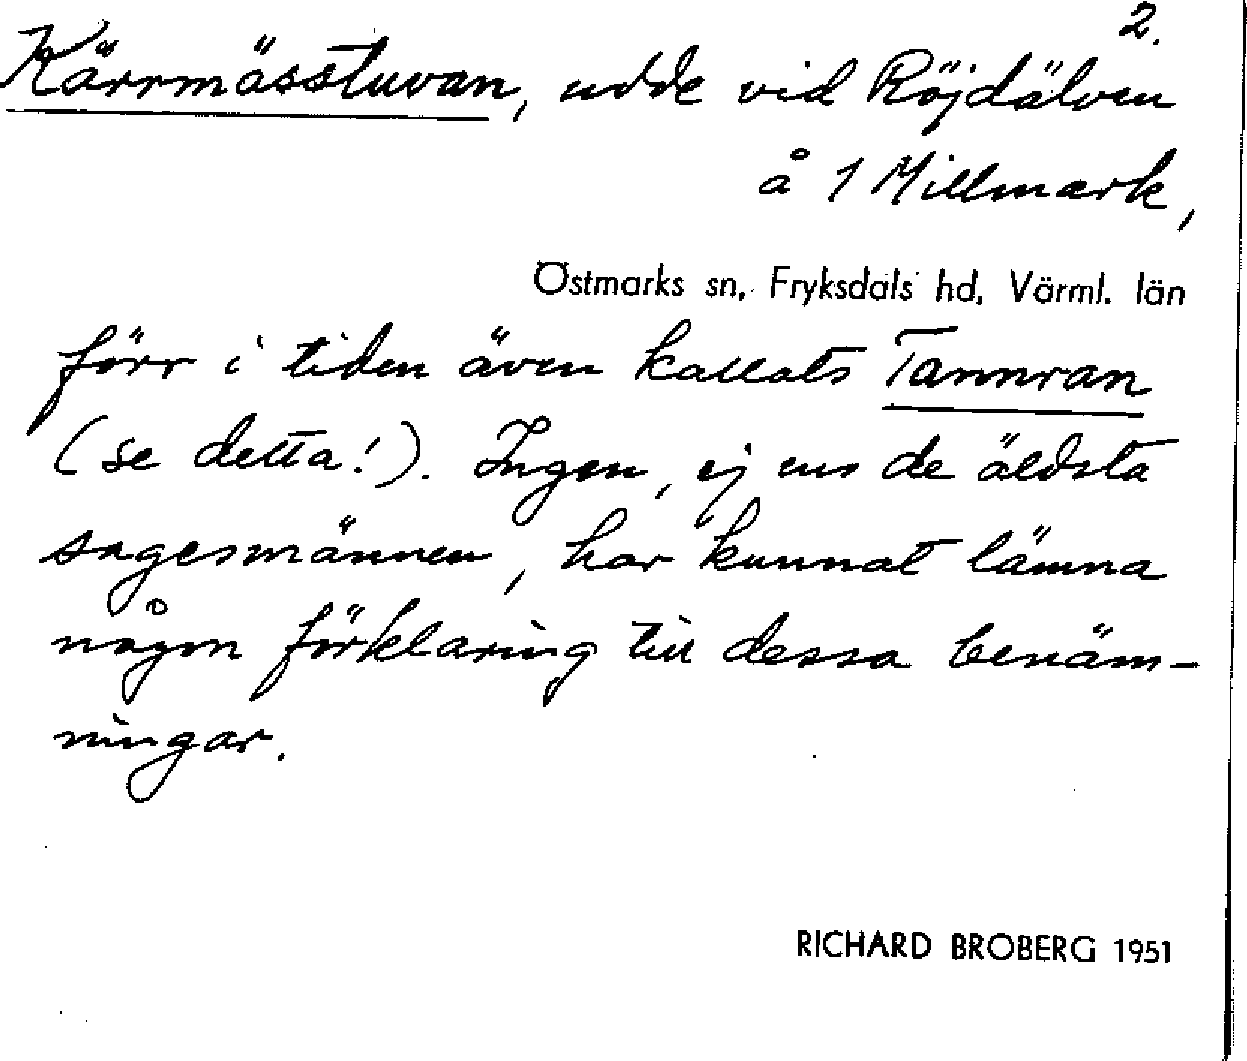 2.
Kärrmässtuvan, udde vid Röjdälven
å 1 Millmark,
Östmarks sn, Fryksdals hd, Värml. län
förr i tiden även kallats Tannran
(se detta!). Ingen, ej ens de äldsta
sagesmännen, har kunnat lämna
någon förklaring till dessa benäm-
ningar.
RICHARD BROBERG 1951